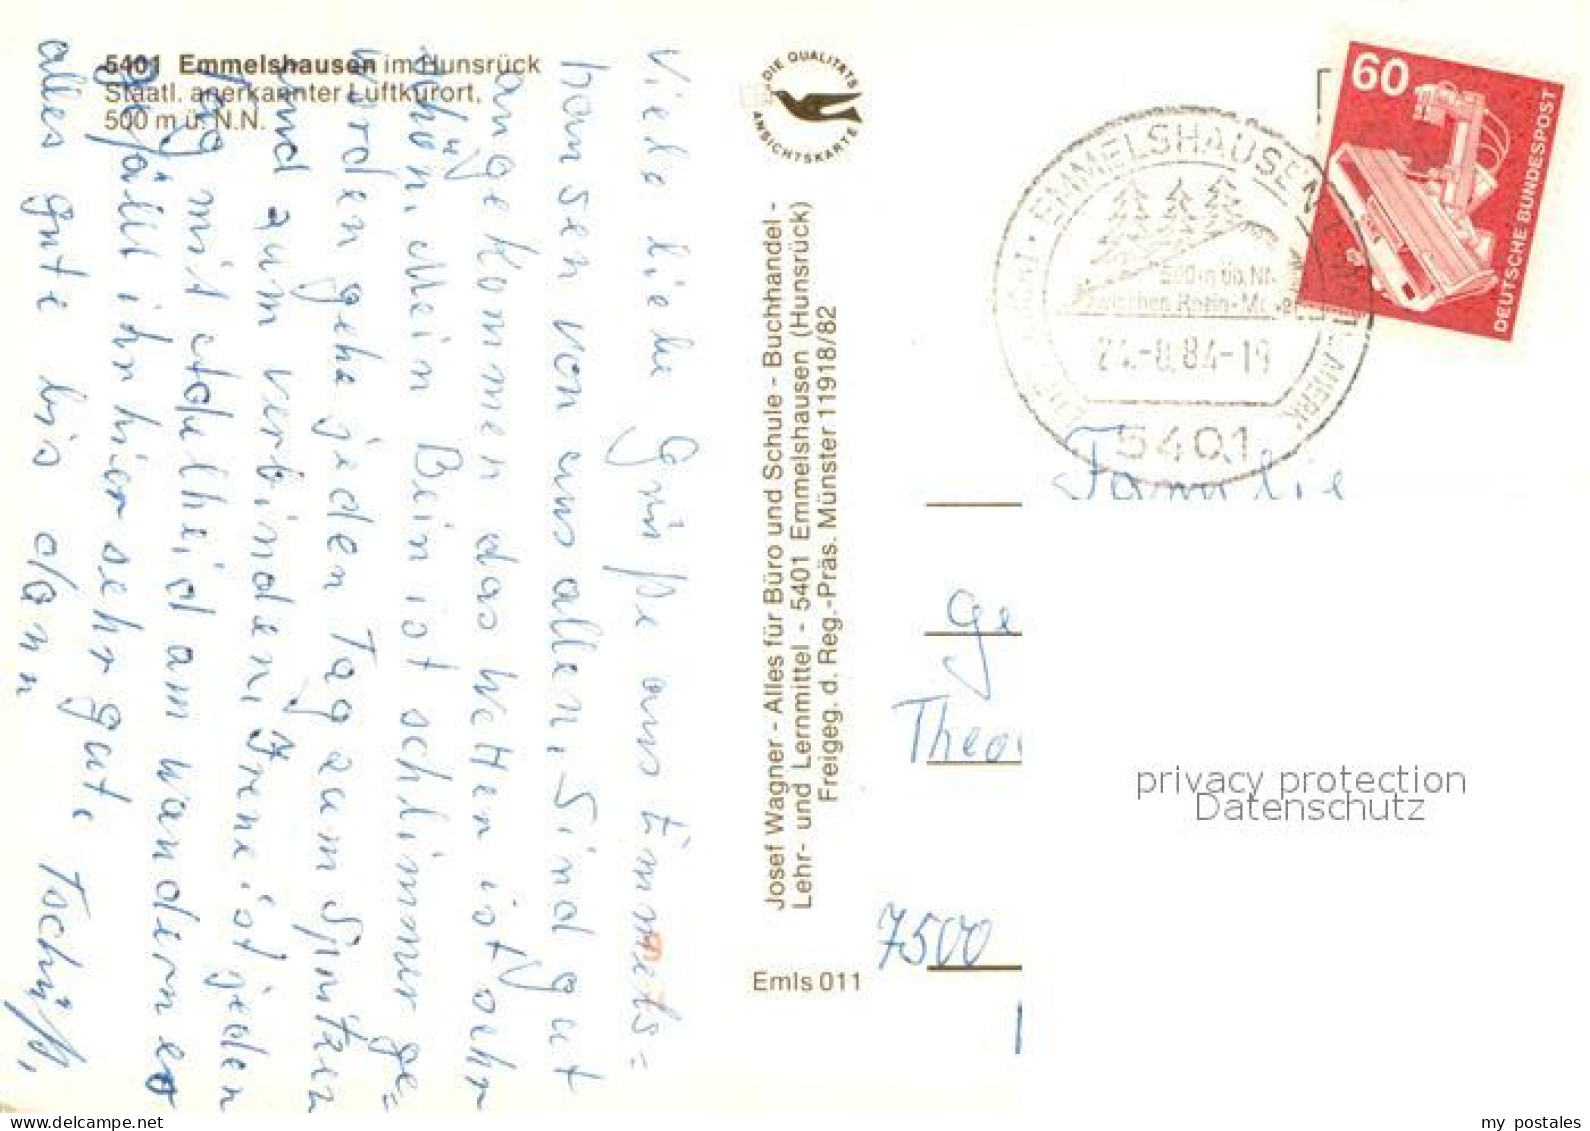 5401 Emmelshausen im Hunsrück
Staatl. anerkannter Luftkurort,
500 m ü. N.N.
Viele liebe Grüße aus Emmels=
hausen von uns allen, Sind gut
angekommen das Wetter ist sehr
schön, Mein Bein ist schlimmer ge=
worden gehe jeden Tag zum Spritzen
und zum verbinden, Irene ist jeden
Tag mit Adelheid am wandern es
gefällt ihr hier sehr gut,
alles gute bis dann Tschüß,
DIE QUALITÄTS
ANSICHTSKARTE
Josef Wagner - Alles für Büro und Schule - Buchhandel -
Lehr- und Lernmittel - 5401 Emmelshausen (Hunsrück)
Freigeg. d. Reg.-Präs. Münster 11918/82
Emls 011
60
DEUTSCHE BUNDESPOST
EMMELSHAUSEN
500 m üb. NN
zwischen Rhein-Mosel
24.-8.84-19
5401
Familie
Ge
Theo
7500
privacy protection
Datenschutz
my postales